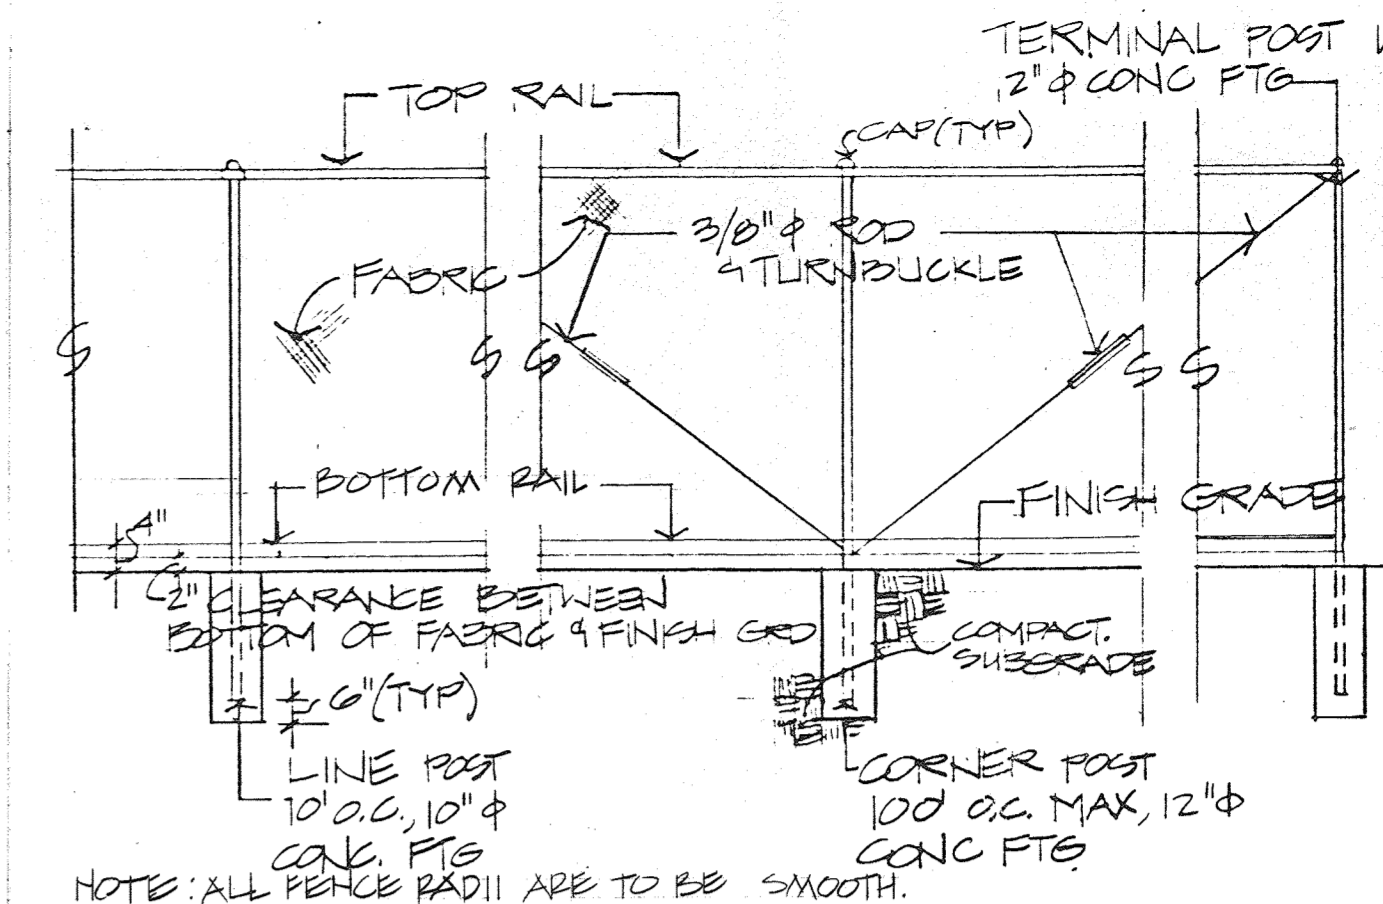 TERMINAL POST
2" ϕ CONC FTG
TOP RAIL
CAP (TYP)
3/8" ϕ ROD
& TURNBUCKLE
FABRIC
BOTTOM RAIL
FINISH GRADE
4"
2" CLEARANCE BETWEEN
BOTTOM OF FABRIC & FINISH GRD
COMPACT.
SUBGRADE
6" (TYP)
LINE POST
10' O.C., 10" ϕ
CONC. FTG
CORNER POST
100' O.C. MAX, 12" ϕ
CONC FTG
NOTE: ALL FENCE RADII ARE TO BE SMOOTH.